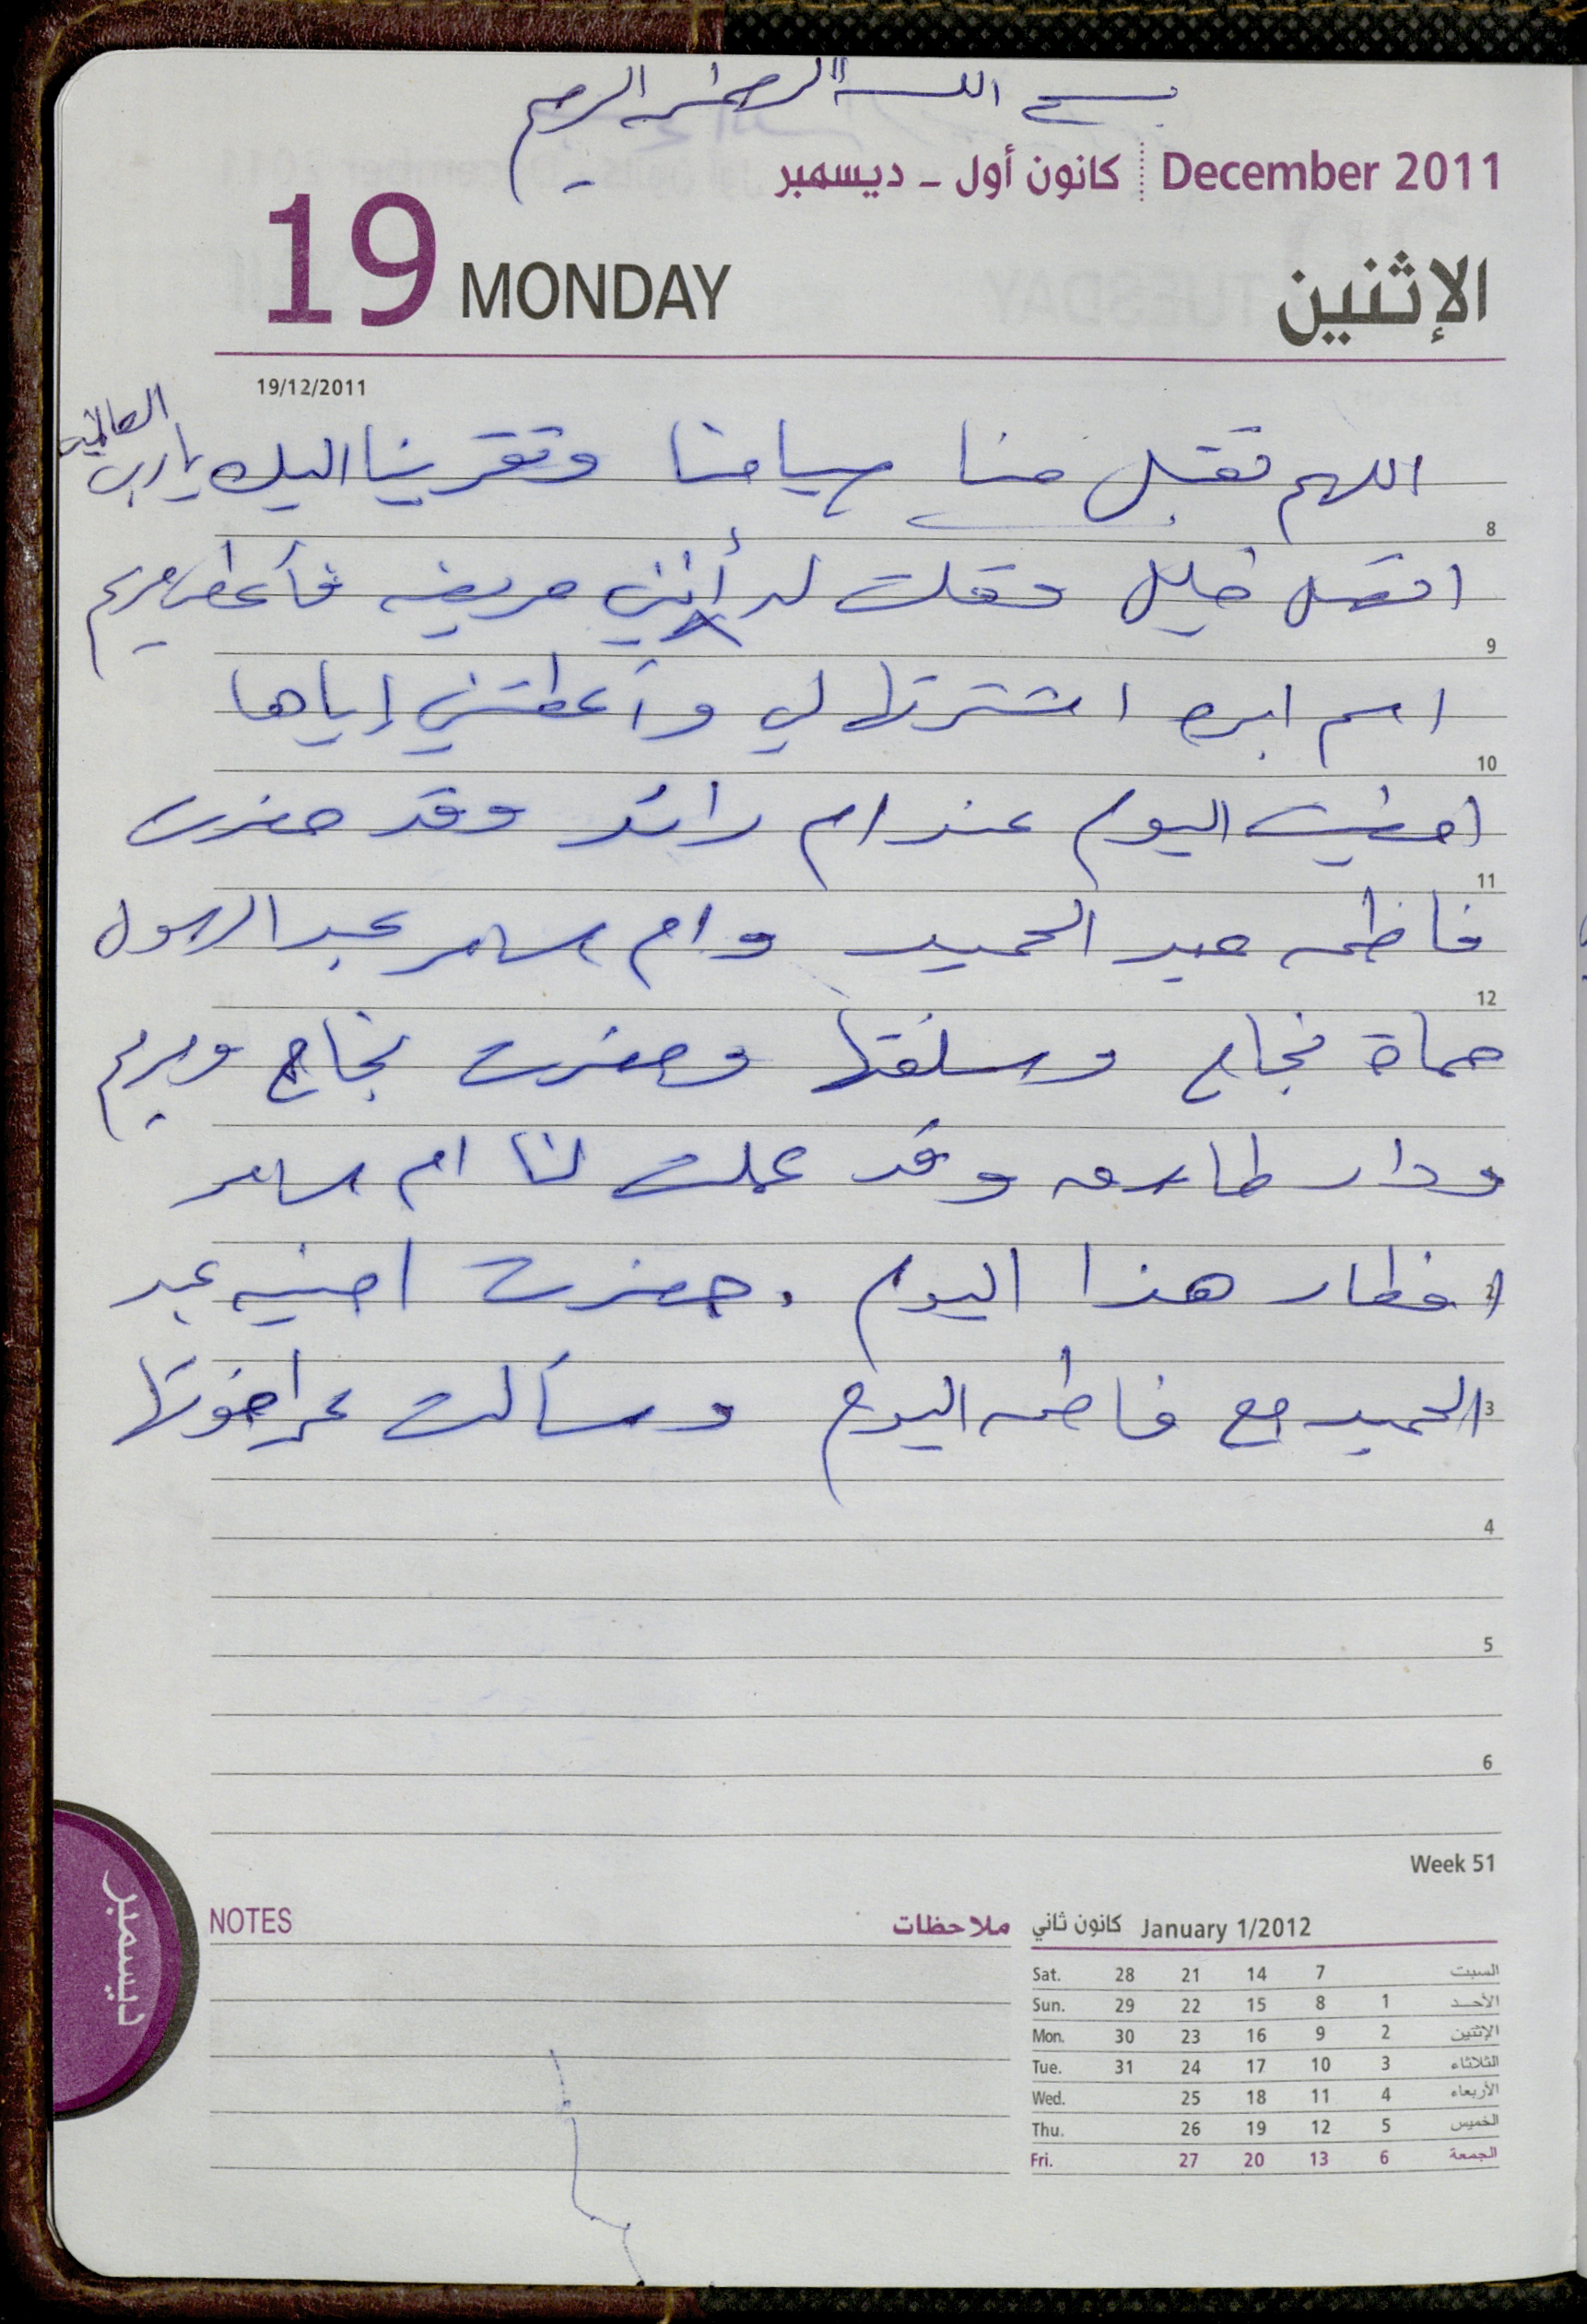 بسم الله الرحمن الرحيم
December 2011 كانون أول - ديسمبر
19 MONDAY الإثنين
19/12/2011
اللهم تقبل منا صيامنا وتقربنا اليك يا رب العالمين
8
اتصل خليل وقلت له أنني مريضه فأعطى مريم
9
اسم ابره اشترتها لي وأعطتني إياها
10
امضيت اليوم عند ام رائد وقد حضرت
11
فاطمه عبد الحميد وام سامر عبد الرسول
12
حماة نجاح وسلفتها وحضرت نجاح ومريم
ودار طارق وقد عملت لنا ام سامر
افطار هذا اليوم . حضرت امنيه عبد
2
الحميد مع فاطمه اليوم وسألت عن اخوتها
3
4
5
6
Week 51
NOTES ملاحظات
January 1/2012 كانون ثاني
Sat. 28 21 14 7 السبت
Sun. 29 22 15 8 1 الأحـد
Mon. 30 23 16 9 2 الإثنين
Tue. 31 24 17 10 3 الثلاثاء
Wed. 25 18 11 4 الأربعاء
Thu. 26 19 12 5 الخميس
Fri. 27 20 13 6 الجمعة
ديسمبر